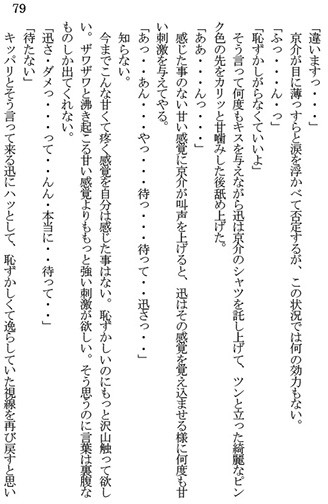 79
「違いますっ・・・」
京介が目に薄っすらと涙を浮かべて否定するが、この状況では何の効力もない。
「ふっ・・・んっ」
「恥ずかしがらなくていいよ」
そう言って何度もキスを与えながら迅は京介のシャツを託し上げて、ツンと立った綺麗なピン
ク色の先をカリッと甘噛みした後舐め上げた。
「ああ・・・んっ・・・」
感じた事のない甘い感覚に京介が叫声を上げると、迅はその感覚を覚え込ませる様に何度も甘
い刺激を与えてやる。
「あっ・・・あん・・・やっ・・・待っ・・・待って・・迅さっ・・」
知らない。
今までこんな甘くて疼く感覚を自分は感じた事はない。恥ずかしいのにもっと沢山触って欲し
い。ザワザワと沸き起こる甘い感覚よりももっと強い刺激が欲しい。そう思うのに言葉は裏腹な
ものしか出てくれない。
「迅さ・ダメっ・・・って・・んん・本当に・・待って・・」
「待たない」
キッパリとそう言って来る迅にハッとして、恥ずかしくて逸らしていた視線を再び戻すと思い